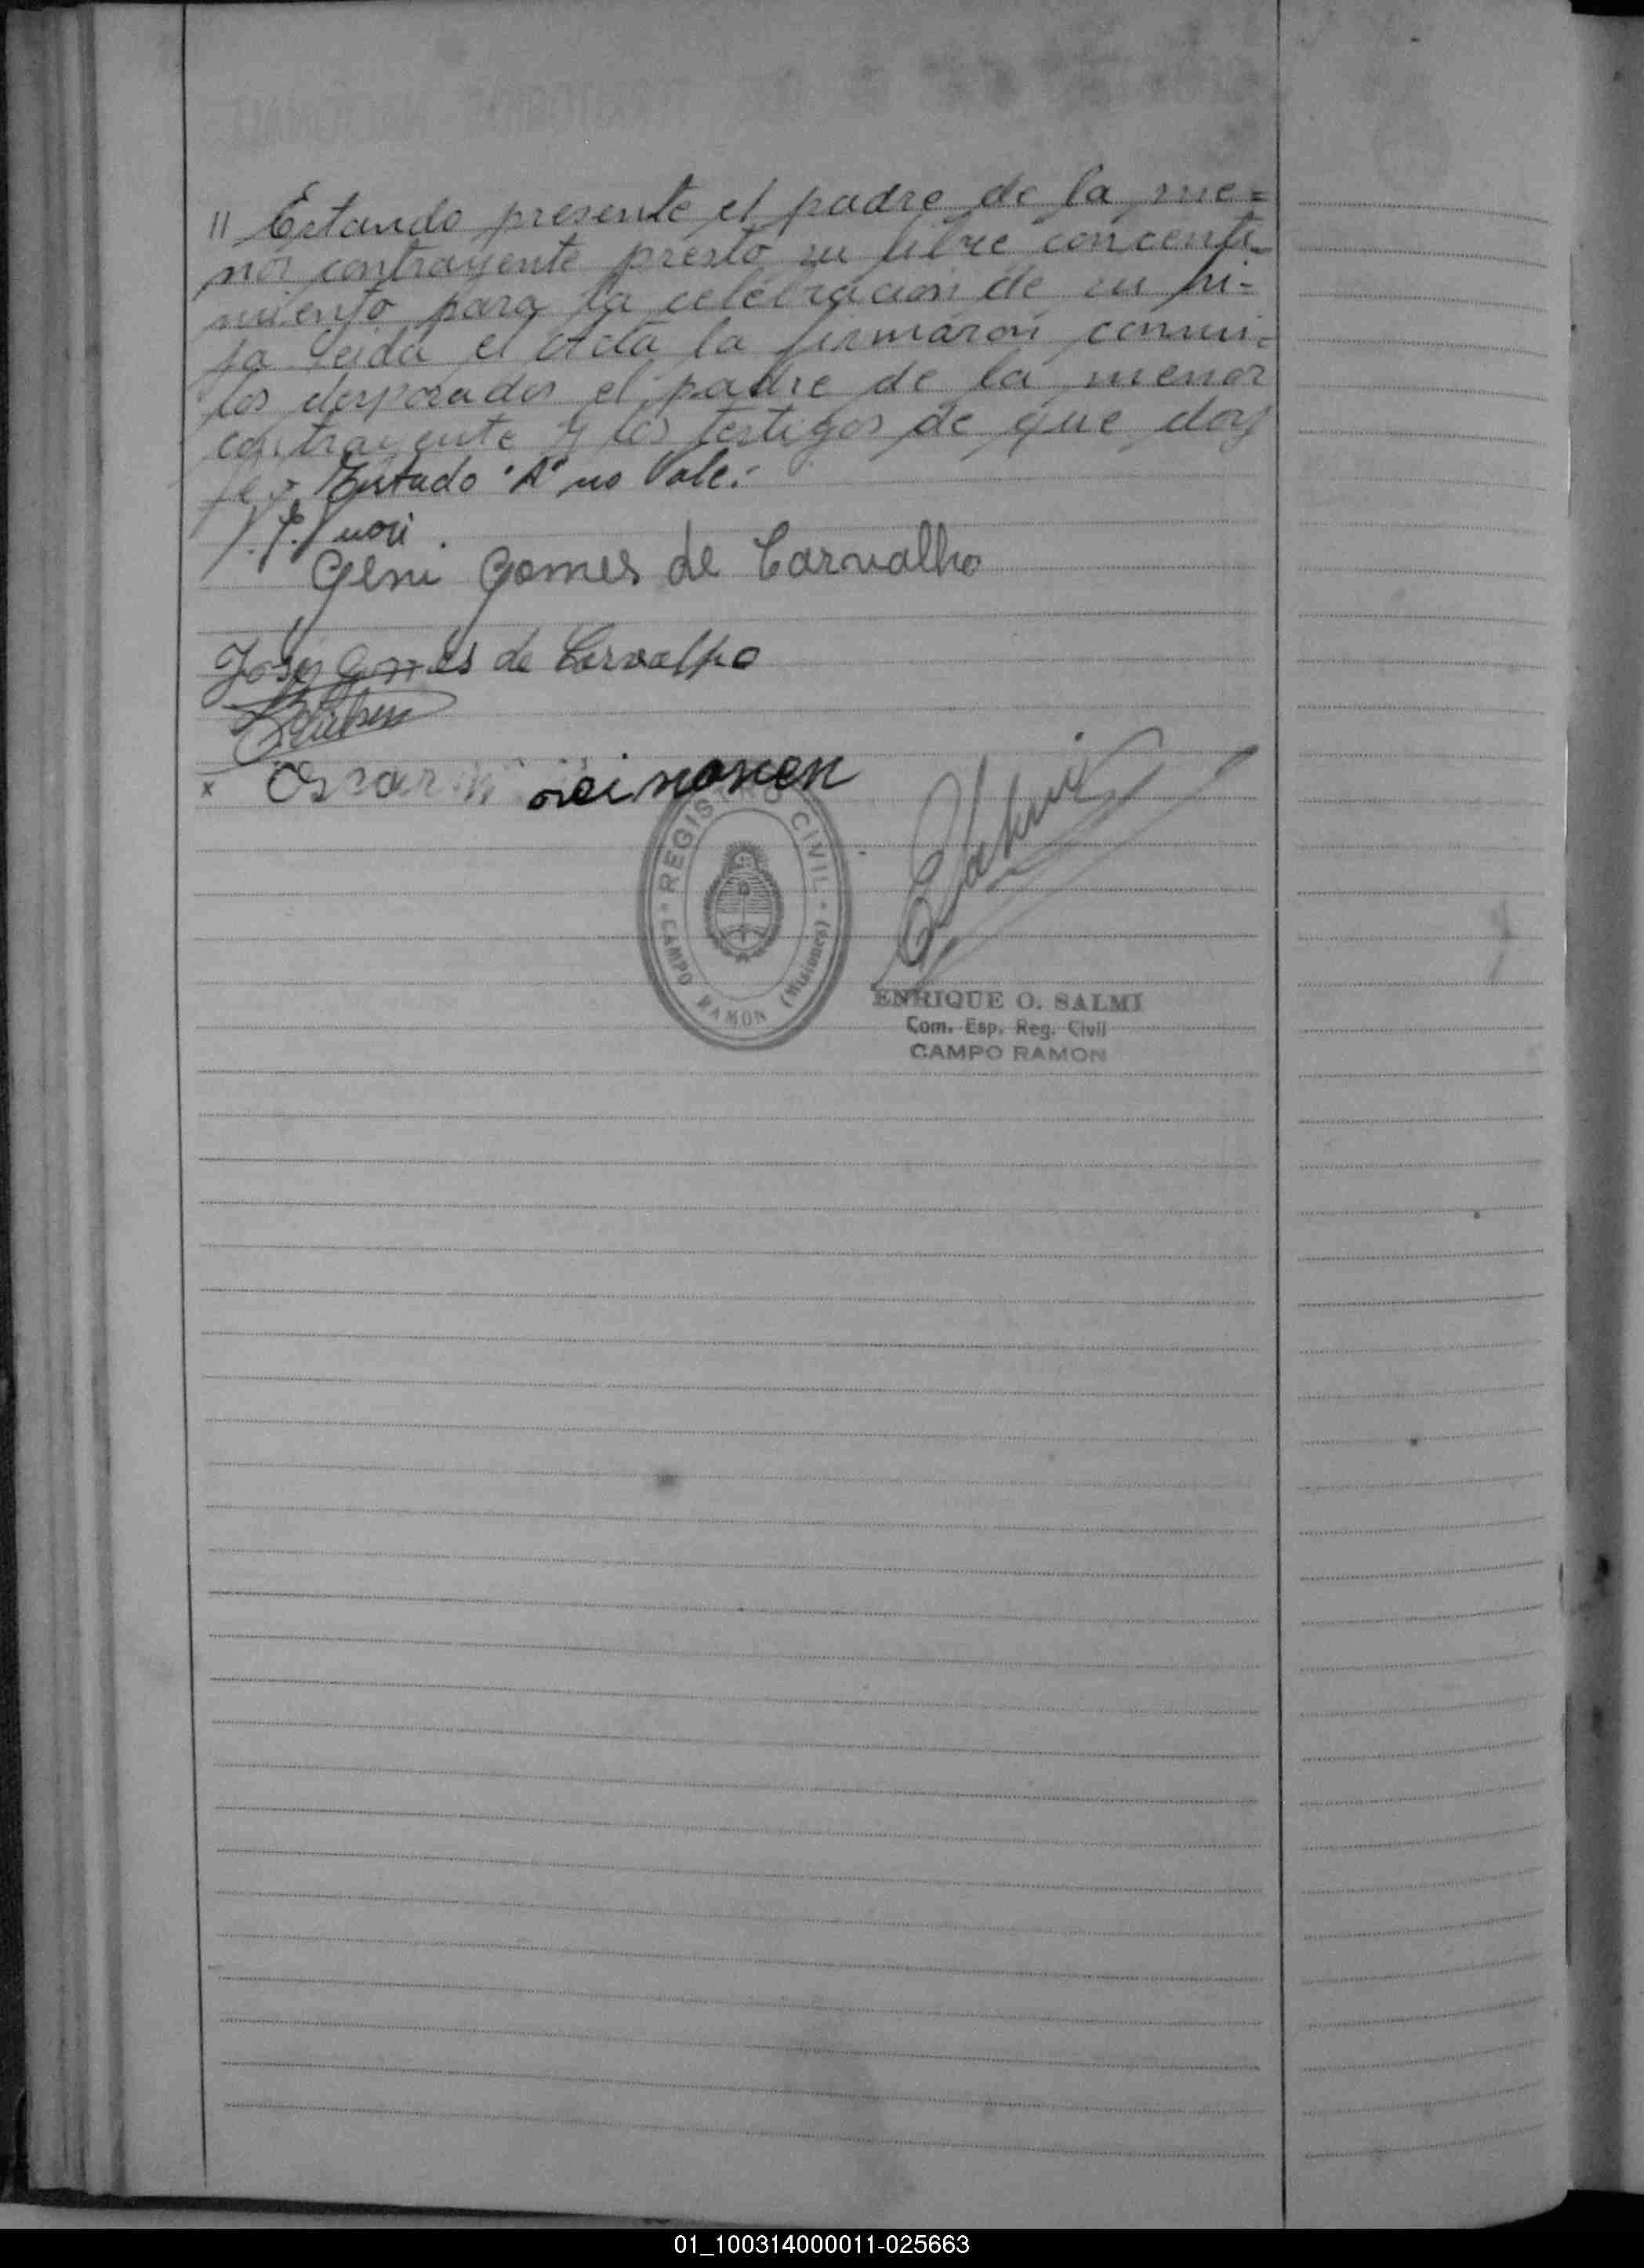 " Estando presente el padre de la me=
nor contrayente prestó su libre concenti-
miento para la celebración de su hi-
ja leida el Acta la firmaron conmi-
los desposados el padre de la menor
contrayente y los testigos de que doy
fe. Entado "A" no Vale.
Geni Gomes de Carvalho
José Gomes de Carvalho
x Oscar
REGISTRO CIVIL
CAMPO RAMON (Misiones)
ENRIQUE O. SALMI
Com. Esp. Reg. Civil
CAMPO RAMON
01_100314000011-025663